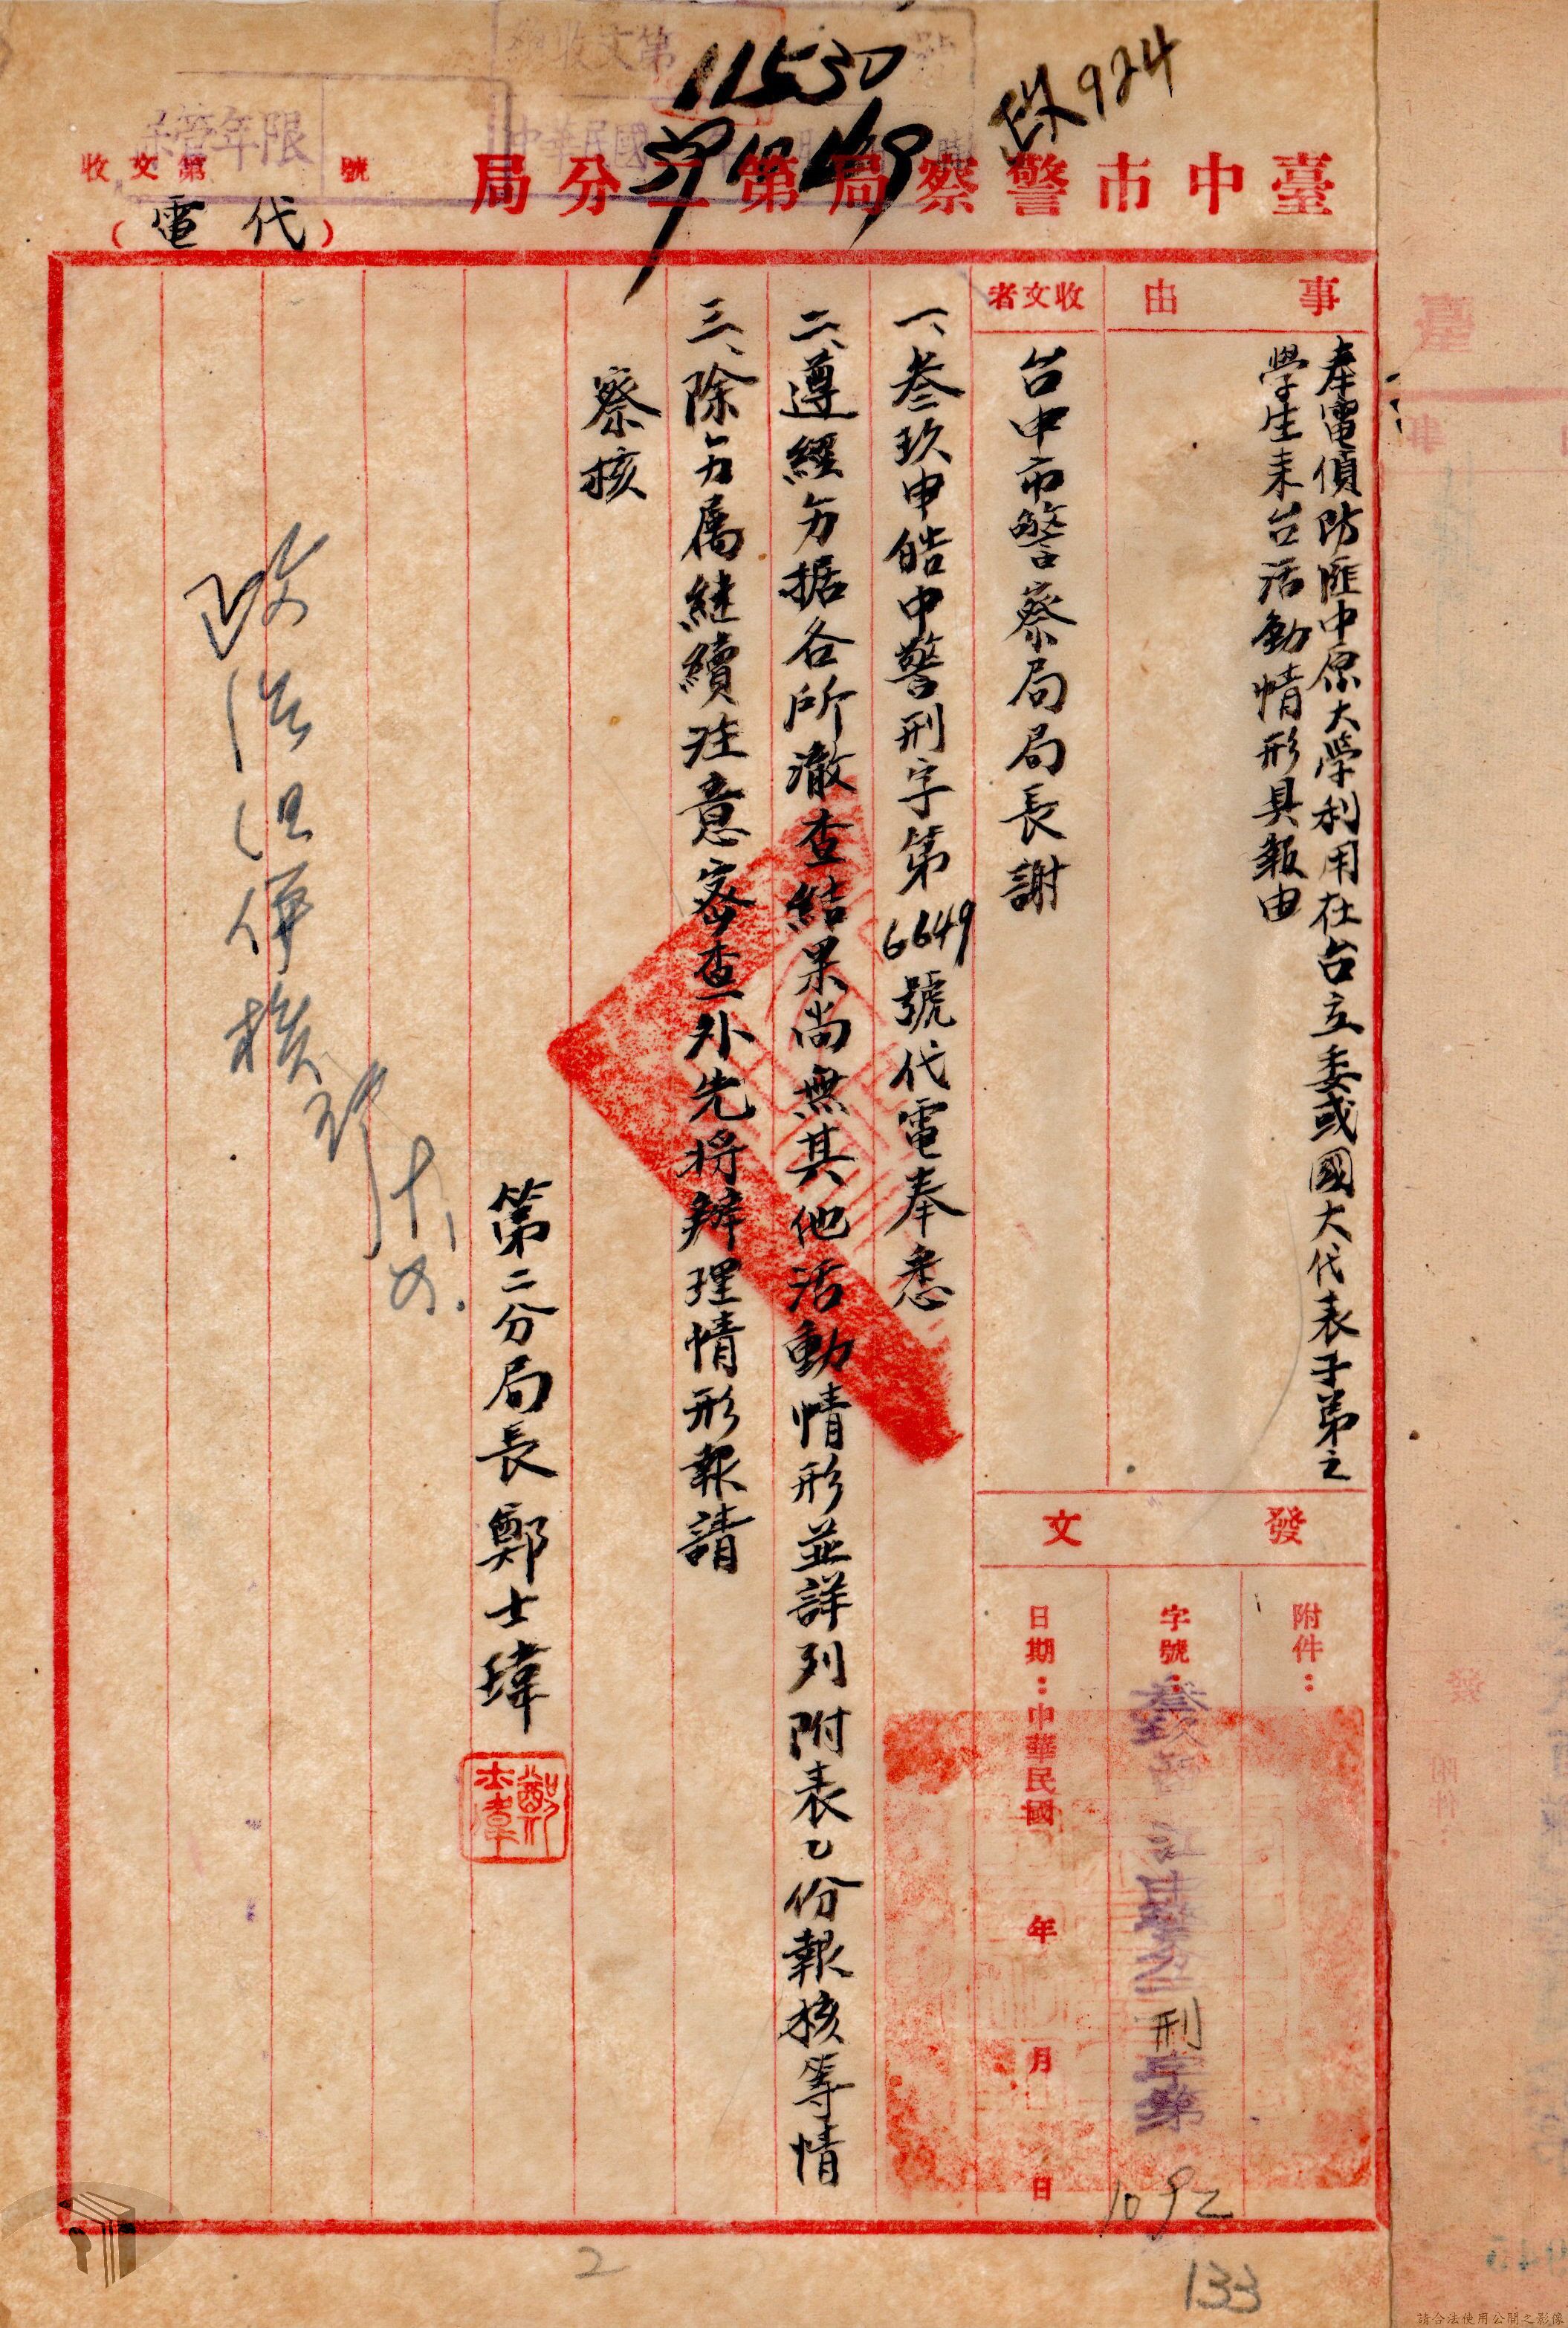 11530
924
臺中市警察局第二分局
(代電)
收文第 號
保管年限
事由
奉電偵防匪中原大學利用在台立委或國大代表子弟之
學生來台活動情形具報由
收文者
台中市警察局局長謝
發文
附件：
字號：
刑
字第
1092
日期：中華民國 年 月 日
一、叁玖申皓中警刑字第6649號代電奉悉
二、遵經另據各所澈查結果尚無其他活動情形並詳列附表乙份報核等情
三、除另屬継續注意密查外先將辦理情形報請
察核
第二分局長鄭士瑋
鄭士瑋
133
2
請合法使用公開之影像